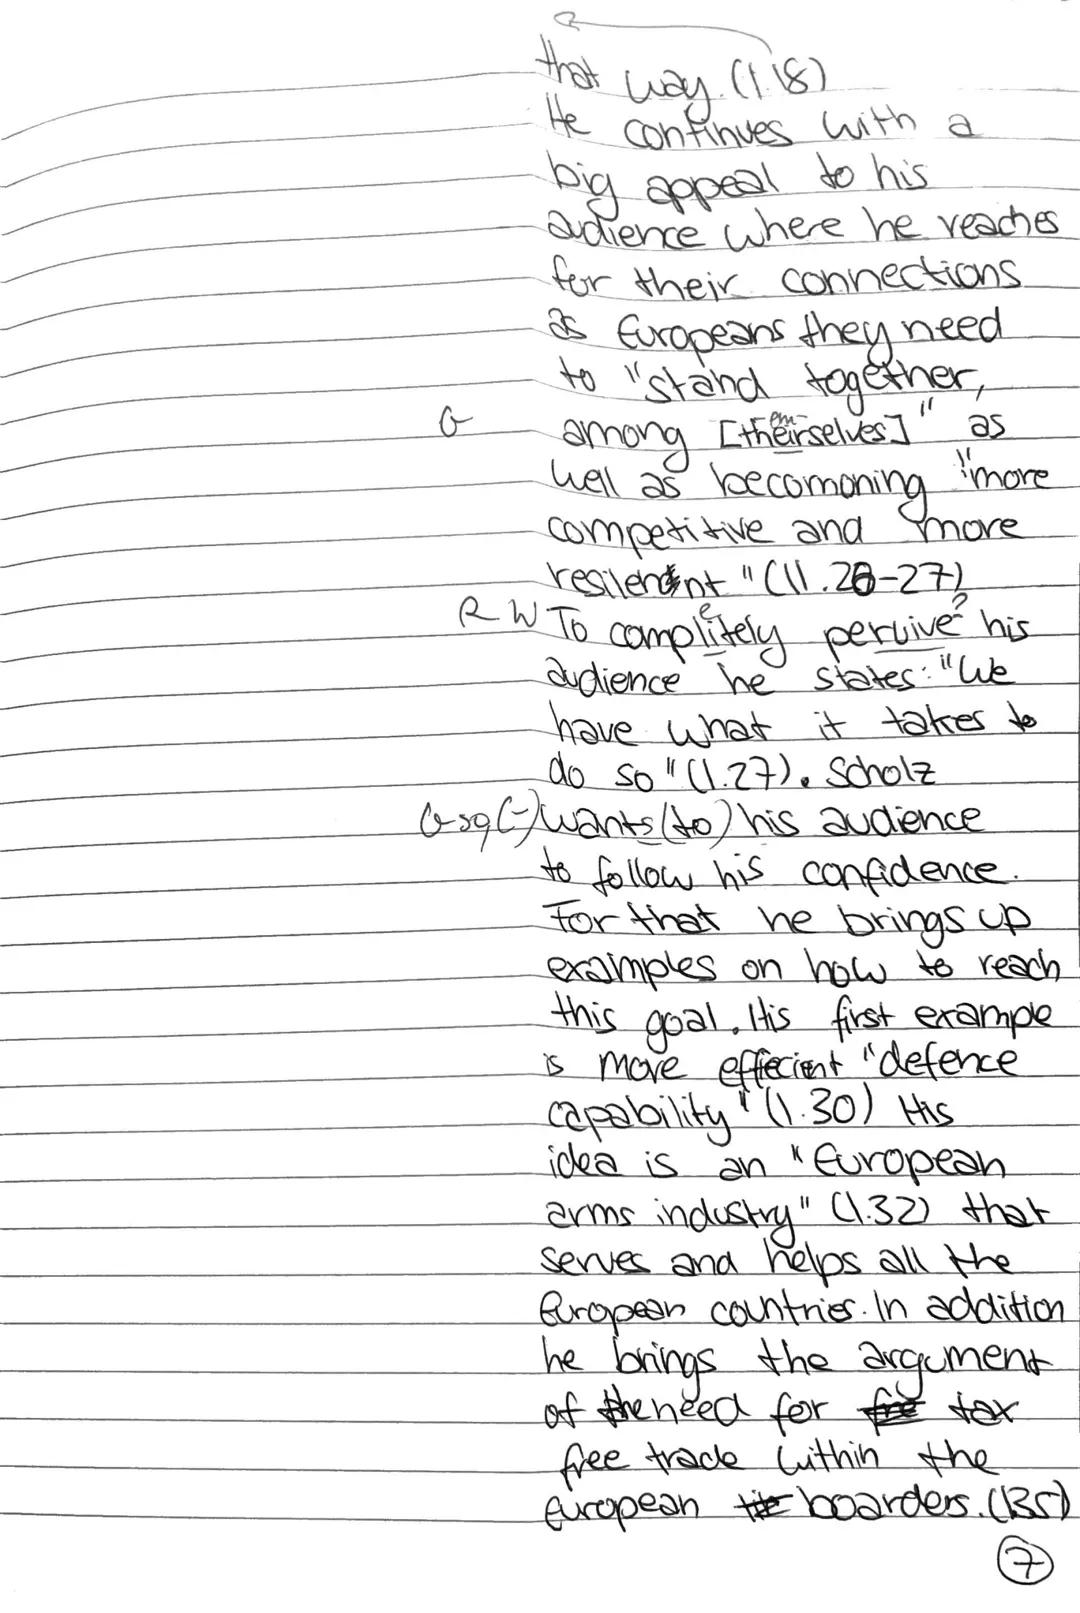 that way. (l.18)
He continues with a
big appeal to his
audience where he reaches
for their connections
as Europeans they need
to "stand together,
em
G among [theirselves]" as
well as becomoning "more
competitive and more
resilent" (ll.26-27)
R W To complitely pervive? his
e
audience he states: "We
have what it takes to
do so" (l.27). Scholz
G-sq(-) wants (to) his audience
to follow his confidence.
For that he brings up
examples on how to reach
this goal. His first example
is more effecient "defence
capability" (l.30) His
idea is an "European
arms industry" (l.32) that
serves and helps all the
European countries. In addition
he brings the argument
of the need for fre tax
free trade within the
european boarders. (l35)
7